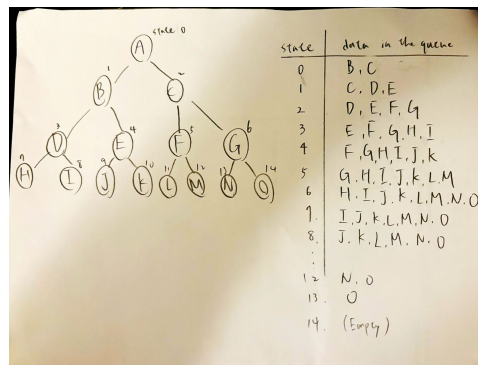 A state 0
B 1 C 2
D 3 E 4 F 5 G 6
H 7 I 8 J 9 K 10 L 11 M 12 N 13 O 14
state data in the queue
0 B, C
1 C, D, E
2 D, E, F, G
3 E, F, G, H, I
4 F, G, H, I, J, K
5 G, H, I, J, K, L, M
6 H, I, J, K, L, M, N, O
7. I, J, K, L, M, N, O
8. J, K, L, M, N, O
:
12 N, O
13. O
14. (Empty)